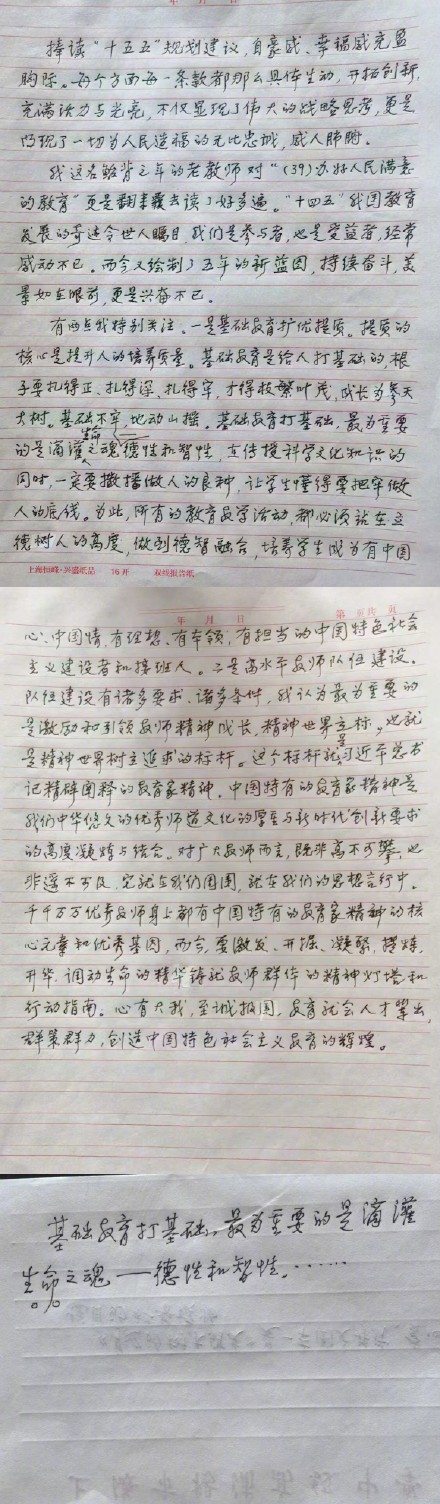 年 月 日
捧读“十五五”规划建议，自豪感、幸福感充盈
胸际。每个方面每一条款都那么具体生动，开拓创新，
充满活力与光亮，不仅显现了伟大的战略思考，更是
凸现了一切为人民造福的无比忠诚，感人肺腑。
我这名鲐背之年的老教师对“(39)办好人民满意
的教育”更是翻来覆去读了好多遍。“十四五”我国教育
发展的奇迹令世人瞩目，我们是参与者，也是受益者，经常
感动不已。而今又绘制了五年的新蓝图，持续奋斗，美
景如在眼前，更是兴奋不已。
有两点我特别关注。一是基础教育扩优提质。提质的
核心是提升人的培养质量。基础教育是给人打基础的，根
子要扎得正、扎得深、扎得牢，才得枝繁叶茂，成长为参天
大树。基础不牢，地动山摇。基础教育打基础，最为重要
的是滴灌生命之魂——德性和智性，在传授科学文化知识的
同时，一定要撒播做人的良种，让学生懂得要把牢做
人的底线。为此，所有的教育教学活动，都必须站在立
德树人的高度，做到德智融合，培养学生成为有中国
上海恒峰·兴盛纸品 16开 双线报告纸
年 月 日 第 页共 页
心、中国情，有理想、有本领，有担当的中国特色社会
主义建设者和接班人。二是高水平教师队伍建设。
队伍建设有诸多要求、诸多条件，我认为最为重要的
是激励和引领教师精神成长，精神世界立柱。也就
是精神世界树立追求的标杆。这个标杆就是习近平总书
记精辟阐释的教育家精神。中国特有的教育家精神是
我们中华悠久的优秀师道文化的厚重与新时代创新要求
的高度凝练与结合。对广大教师而言，既非高不可攀，也
非遥不可及，它就在我们周围，就在我们的思想言行中。
千千万万优秀教师身上都有中国特有的教育家精神的核
心元素和优秀基因，而今，要激发、开掘、凝聚、提炼、
升华，调动生命的精华铸就教师群体的精神灯塔和
行动指南。心有大我，至诚报国，教育就会人才辈出，
群策群力，创造中国特色社会主义教育的辉煌。
基础教育打基础，最为重要的是滴灌
生命之魂——德性和智性。……